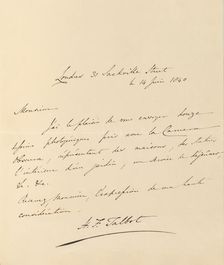 Londres 31 Sackville Street
le 14 Juin 1840
Monsieur
J'ai le plaisir de vous envoyer douze
dessins photogéniques pris avec la Camera
Obscura, représentant des maisons, des statues,
l'intérieur d'un jardin, un service à déjeuner,
&c. &c.
Agréez, Monsieur, l'expression de ma haute
considération.
H. F. Talbot